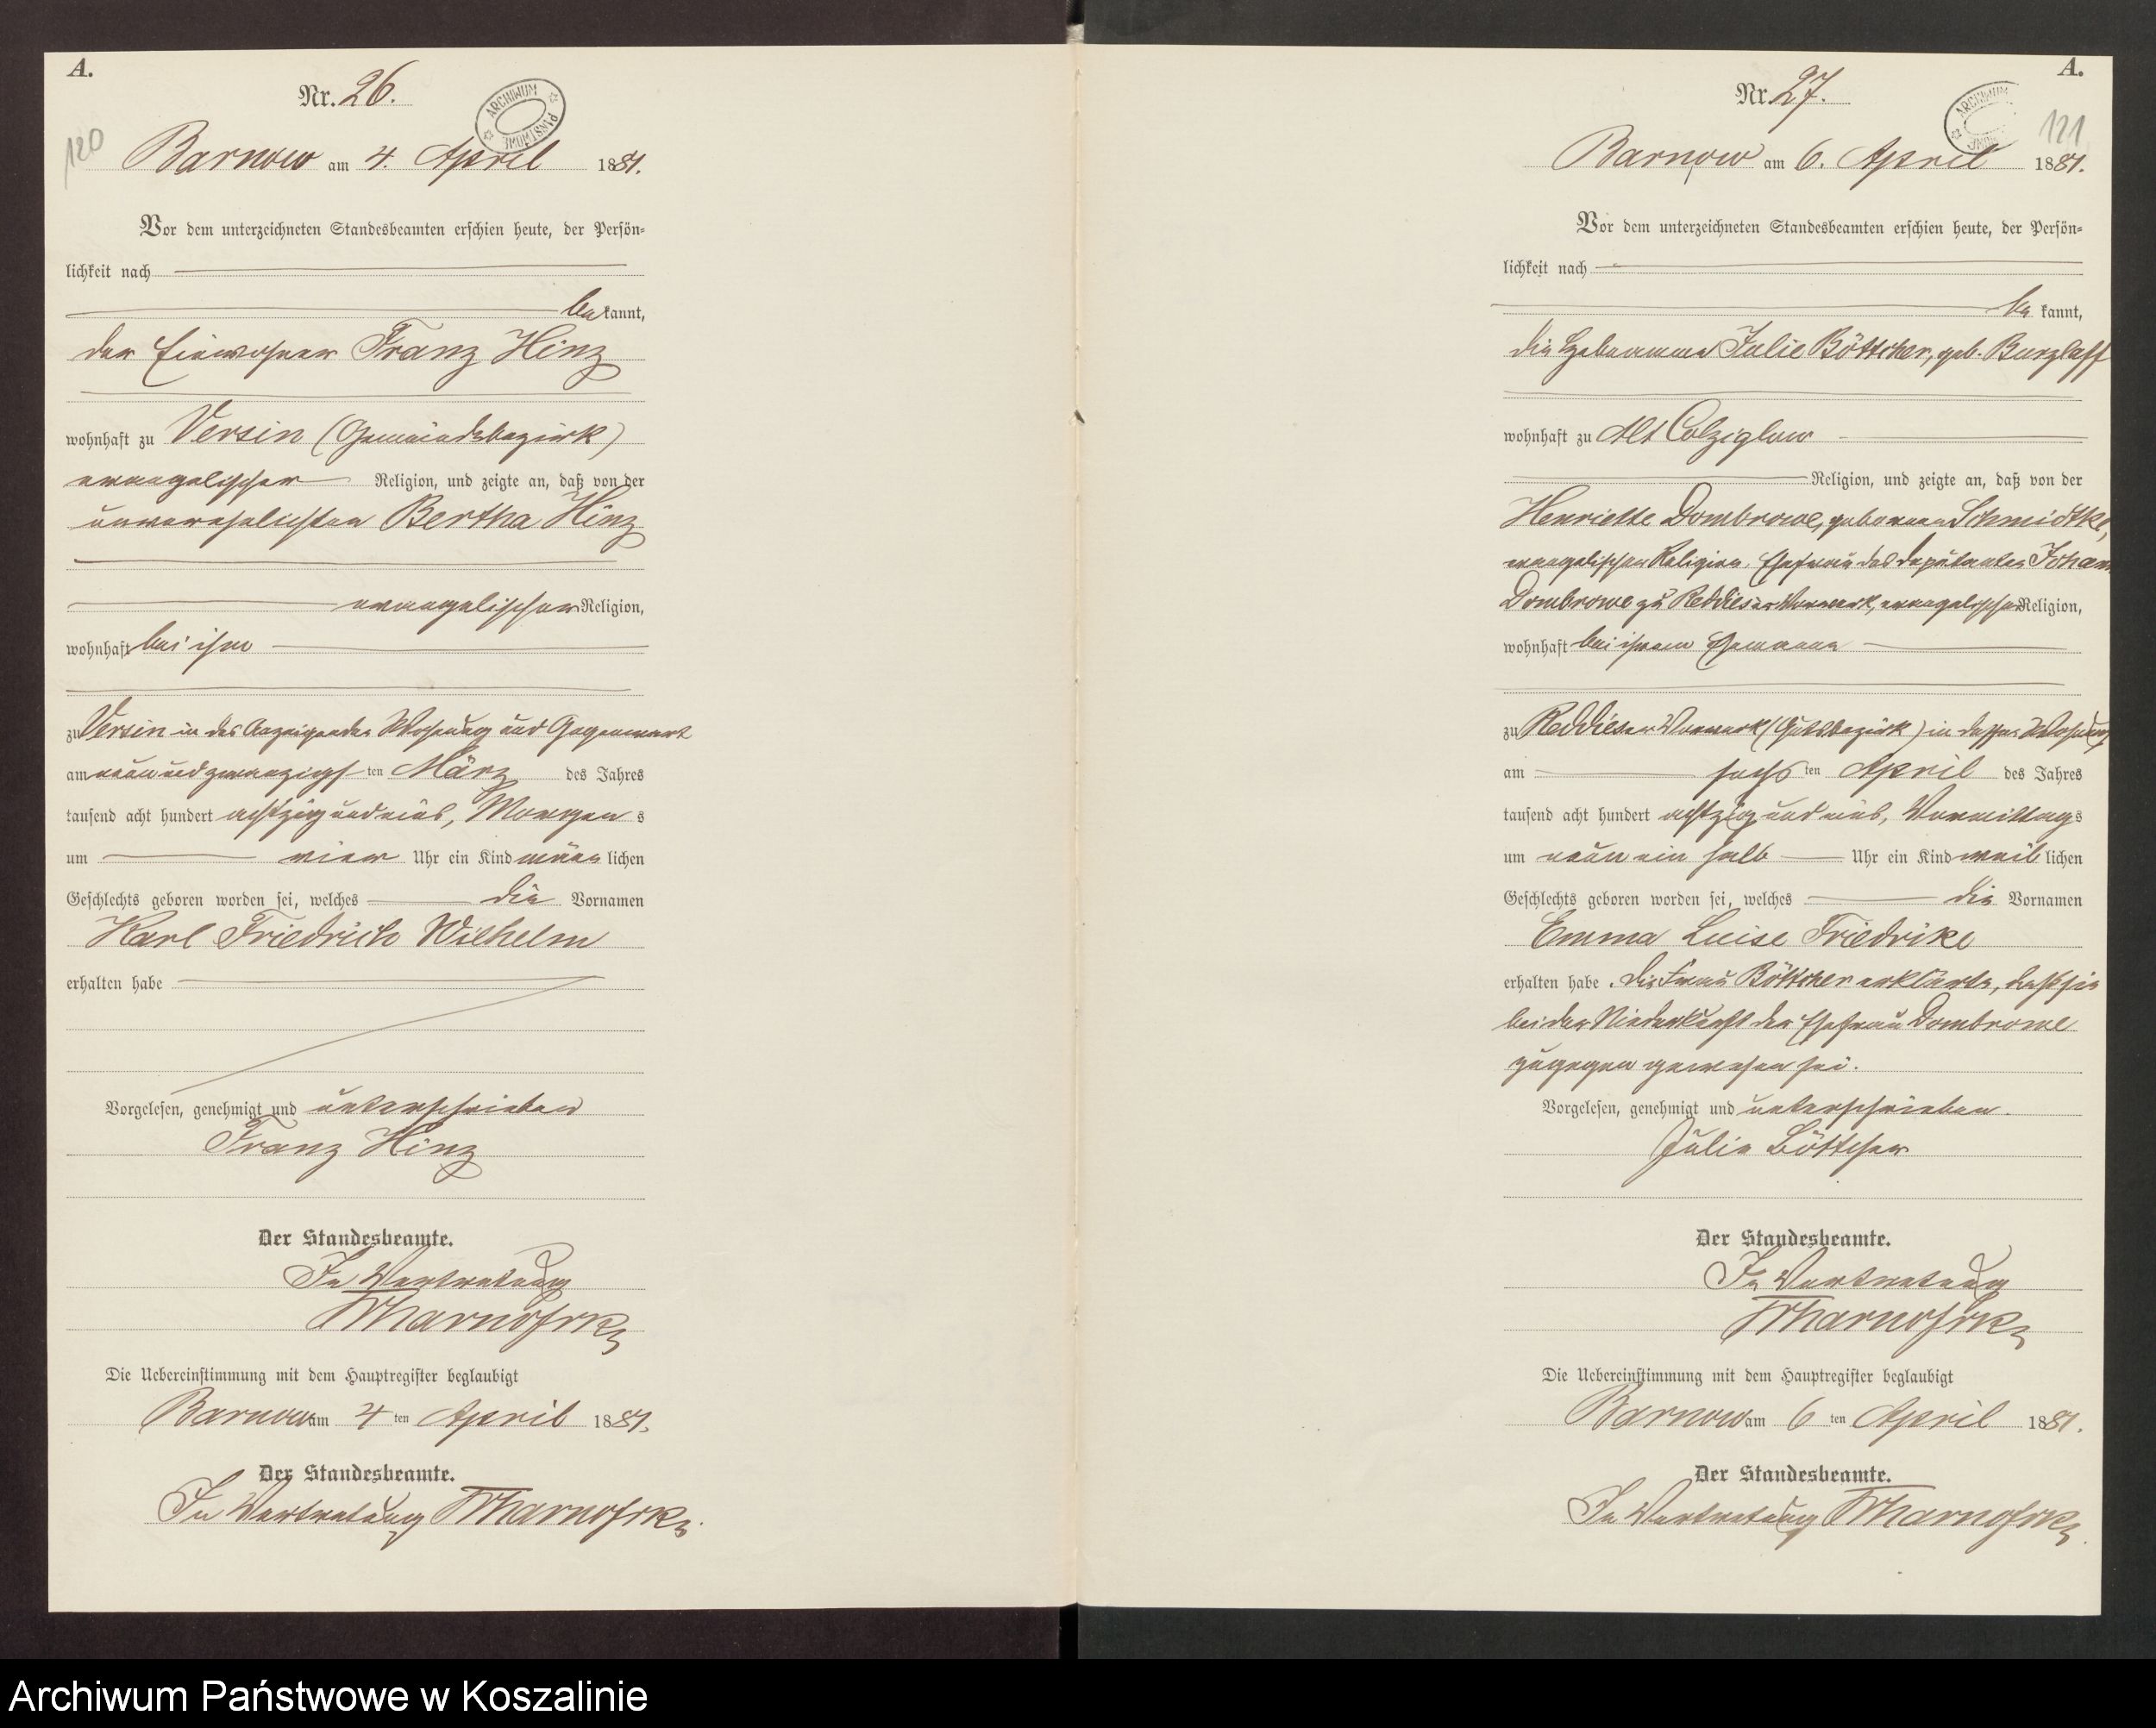 A.
Nr. 26.
ARCHIWUM PAŃSTWOWE
120
Barnow am 4. April 1881.
Vor dem unterzeichneten Standesbeamten erschien heute, der Persön=
lichkeit nach
be kannt,
der Einwohner Franz Hinz
wohnhaft zu Versin (Gemeindebezirk)
evangelischer Religion, und zeigte an, daß von der
unverehelichten Bertha Hinz
evangelischer Religion,
wohnhaft bei ihm
zu Versin in des Anzeigenden Wohnung und Gegenwart
am neunundzwanzigsten März des Jahres
tausend acht hundert achtzig und eins, Morgens
um vier Uhr ein Kind männlichen
Geschlechts geboren worden sei, welches die Vornamen
Karl Friedrich Wilhelm
erhalten habe
Vorgelesen, genehmigt und unterschrieben
Franz Hinz
Der Standesbeamte.
In Vertretung
Die Uebereinstimmung mit dem Hauptregister beglaubigt
Barnow am 4ten April 1881.
Der Standesbeamte.
In Vertretung
A.
Nr. 27.
ARCHIWUM
121
Barnow am 6. April 1881.
Vor dem unterzeichneten Standesbeamten erschien heute, der Persön=
lichkeit nach
be kannt,
die Hebamme Julie Böttcher, geb. Burzlaff
wohnhaft zu Alt Colziglow
Religion, und zeigte an, daß von der
Henriette Dombrowe, geborenen Schmidtke,
evangelischer Religion, Ehefrau des Deputanten Johann
Dombrowe zu Reddieser Vorwerk, evangelischer Religion,
wohnhaft bei ihrem Ehemanne
zu Reddieser Vorwerk (Gutsbezirk) in dessen Wohnung
am sechsten April des Jahres
tausend acht hundert achtzig und eins, Vormittags
um neun ein halb Uhr ein Kind weiblichen
Geschlechts geboren worden sei, welches die Vornamen
Emma Luise Friedrike
erhalten habe. Die Frau Böttcher erklärte, daß sie
bei der Niederkunft der Ehefrau Dombrowe
zugegen gewesen sei.
Vorgelesen, genehmigt und unterschrieben.
Julie Böttcher
Der Standesbeamte.
In Vertretung
Die Uebereinstimmung mit dem Hauptregister beglaubigt
Barnow am 6ten April 1881.
Der Standesbeamte.
In Vertretung
Archiwum Państwowe w Koszalinie